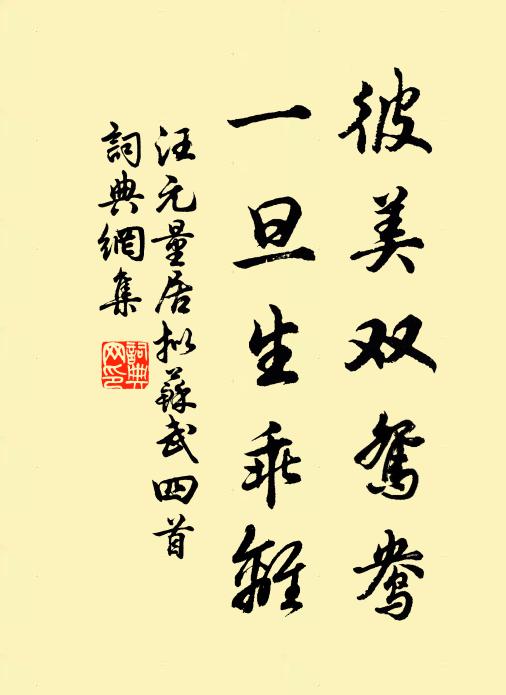 彼美双鴛鴦
一旦生乖離
汪元量居拟蘇武四首
詞典網集
詞典网印